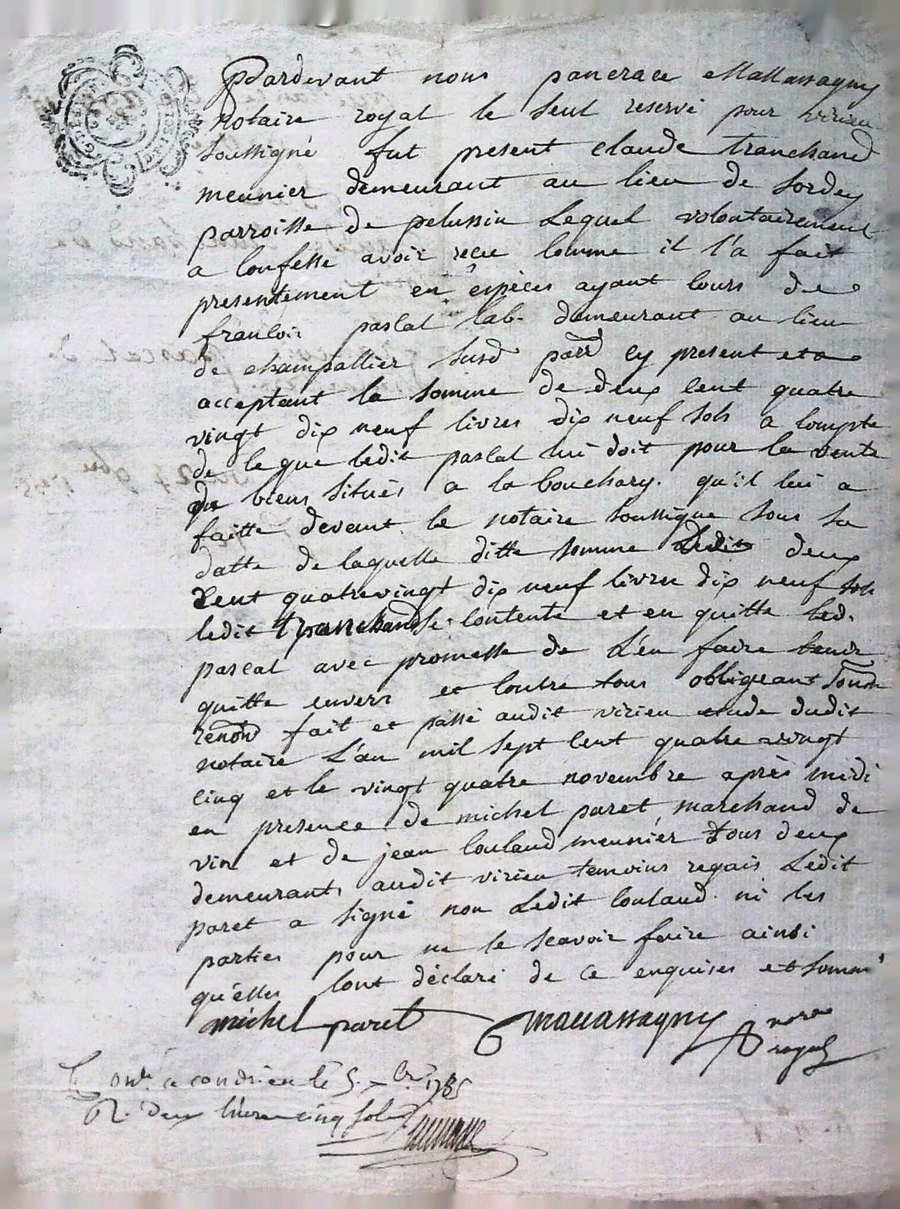 Pardevant nous pancrace Mallassagny
notaire royal le seul reservé pour virieu
soussigné fut present claude tranchand
meunier demeurant au lieu de sordey
parroisse de pelussin Lequel volontairement
a confessé avoir recu comme il l'a fait
presentement en especes ayant cours de
francois pascal lab. demeurant au lieu
de champallier susd parr cy present et
acceptant la somme de deux cent quatre
vingt dix neuf livres dix neuf sols a compte
de le que ledit pascal lui doit pour la vente
de biens situés a la bouchary. qu'il lui a
faitte devant le notaire soussigné sous sa
datte de laquelle ditte somme deux
cent quatrevingt dix neuf livres dix neuf sols
ledit tranchand se contente et en quitte led.
pascal avec promesse de l'en faire tenir
quitte envers et contre tous obligeant
renon fait et passé audit virieu etude dudit
notaire L'an mil sept cent quatre vingt
cinq et le vingt quatre novembre après midi
en presence de michel paret marchand de
vin et de jean couland meunier tous deux
demeurants audit virieu temoins requis Ledit
paret a signé non Ledit couland ni les
parties pour ne le scavoir faire ainsi
qu'elles l'ont déclaré de ce enquises et somm
michel paret Mallassagny nore
royal
Con. a condrieu le 5. xbre 1785
R. deux livres cinq sols